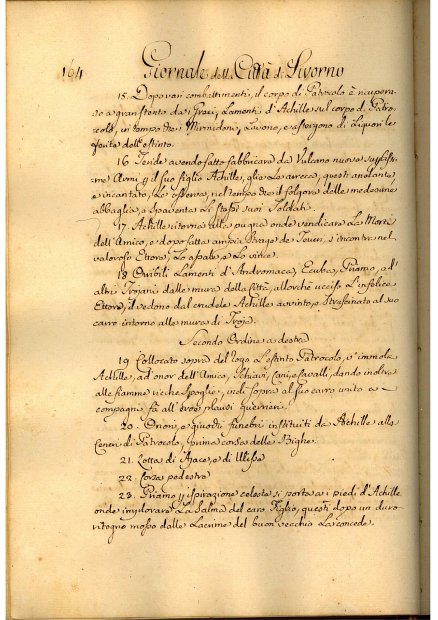 164 Giornale della Città di Livorno
15. Dopo varj combattimenti, il corpo di Patrocolo è ricupera-
to a gran stento da Greci, Lamenti d'Achille sul corpo di Patro-
colo, in tempo che i Mirmidoni, Lavono, e astergono di Liquori le
ferite dell'estinto.
16. Tetide avendo fatto fabbricare da Vulcano nuove
Armi il suo figlio Achille, glie Le arreca, questi anelante,
e incantato, Le osserva, nel tempo che il folgore delle medesime
abbaglia, e spaventa Li stessi suoi Soldati.
17. Achille ritorna alla pugna onde vendicare La Morte
dell'Amico, e dopo fatta ampia Strage de Teucri, s'incontra nel
valoroso Ettore, Lo assale, e Lo vince.
18. Orribili Lamenti d'Andromaca, Ecuba, Priamo, ed
altri Trojani dalle mura della Città, allorchè ucciso L'infelice
Ettore, il vedono dal crudele Achille avvinto, e Strascinato al suo
carro intorno alle mura di Troja.
Secondo Ordine a destra
19. Collocato sopra del rogo L'estinto Patrocolo, s'immola
Achille, ad onor dell'Amico, Schiavi, Cani, e Cavalli, dando inoltre
alle fiamme ricche Spoglie, indi sopra al suo carro unito a
compagni fà all'eroe plausi guerrieri.
20. Onori, e giuochi funebri instituiti da Achille alle
Ceneri di Patrocolo, prima corsa delle Bighe.
21. Lotta di Ajace, e di Ulisse
22. Corsa pedestre
23. Priamo ispirazione celeste si porta a i piedi d'Achille
onde implorare La Salma del caro Figlio, questi dopo un duro
ritegno mosso dalle Lacrime del buon vecchio La concede.